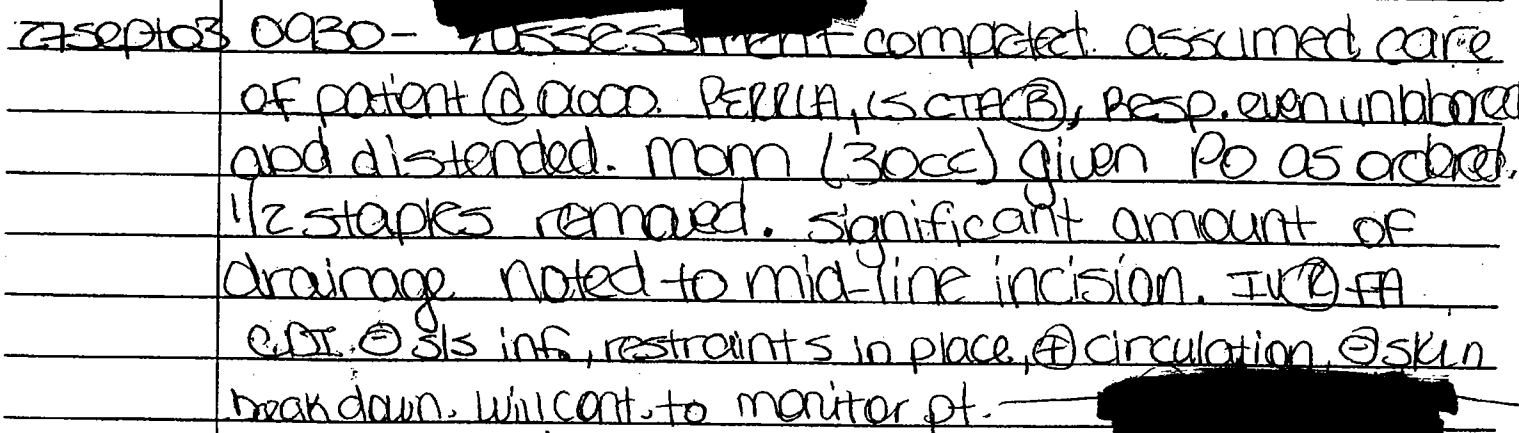 27Sept03 0930- Assessment completed. assumed care
of patient @ 0600. PERRLA, LS CTA(B), Resp. even unlabored
abd distended. mom (30cc) given PO as ordered.
1/2 staples removed. significant amount of
drainage noted to mid-line incision. IV(R)FA
CDI. ⊖ s/s inf, restraints in place, ⊕ circulation, ⊖ skin
break down. will cont. to monitor pt.